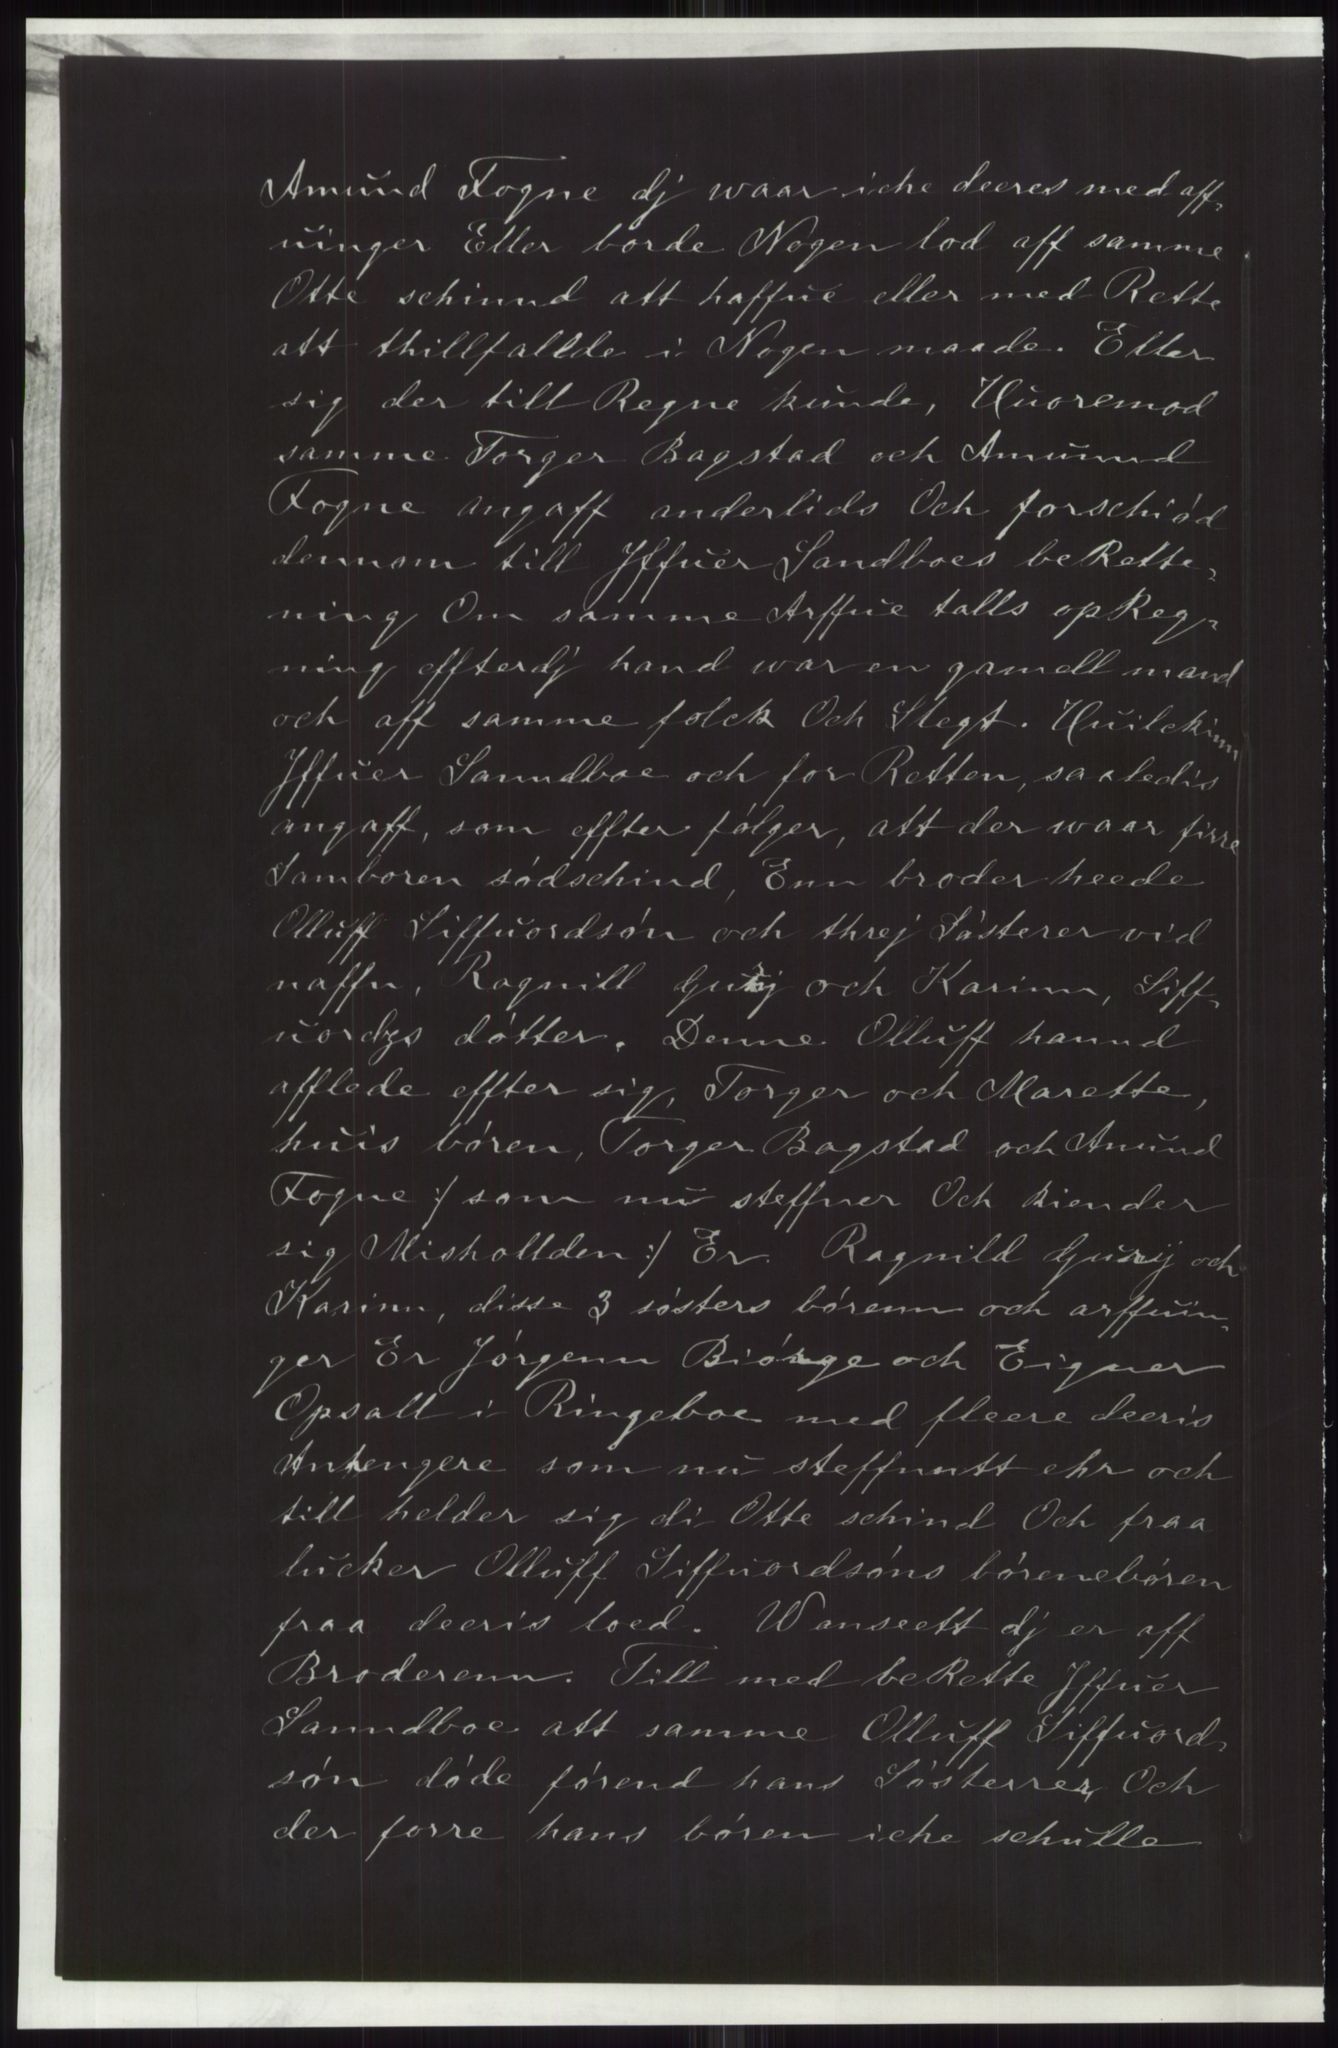 Amund Fogne dj waar iche deeres med aff-
uinger Eller borde Nogen lod aff samme
Otte schinnd att haffue eller med Rette
att thillfallde i Nogen maade. Eller
sig der till Regne kunde, Huoremod
samme Torger Bagstad och Amund
Fogne angaff anderlids Och forschiød
dennom till Jffuer Sandboes beRette-
ning Om samme Arffue talls opReg-
ning effterdj hand war en gamell mand
och aff samme folck Och Slegt. Huilckinn
Jffuer Sanndboe och for Retten, saaledis
angaff, som effter følger, att der waar firre
Samboren sødschind, Enn broder heede
Olluff Siffuordsøn och threj Søsterer vid
naffn, Ragnill Gurj och Karinn, Siff-
uordgs døtter. Denne Olluff hannd
afflede effter sig, Torger och Marette,
huis børen, Torger Bagstad och Amund
Fogne :/ som nu steffner Och kiender
sig Misholden :/ Er. Ragnild Gurij och
Karinn, disse 3 søsters børenn och arffuin-
ger Er Jørgenn Biørge och Eigner
Opsall i Ringeboe med fleere deeris
Anhengere som nu steffnntt ehr och
till helder sig di Otte schind Och fraa
lucker Olluff Siffuordsøns børenebøren
fraa deeris loed. Wanseett dj er aff
Broderenn. Till med beRette Jffuer
Sanndboe att samme Olluff Siffuord-
søn døde førend hans Søsterrer, Och
der forre hans børen iche schulle